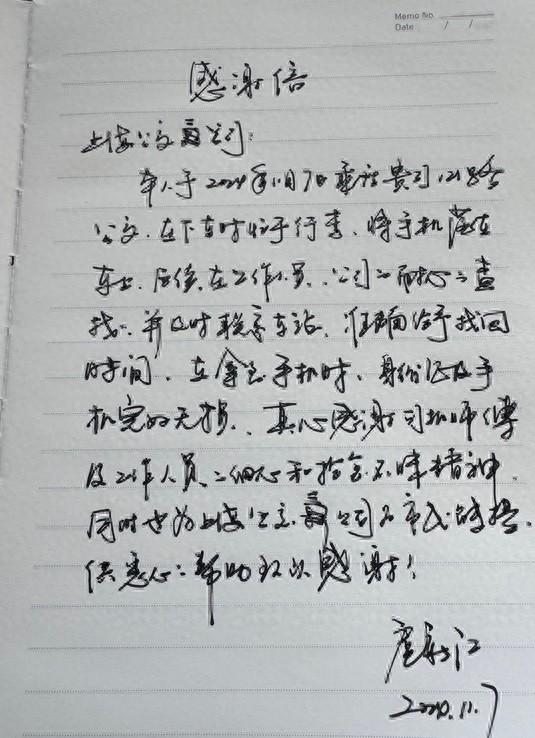 Memo No.
Date / /
感谢信
上海公交三公司:
本人于2024年11月7日乘坐贵司121路
公交、在下车时忙于行李、将手机落在
车上、后经在工作人员、公司的耐心的查
找、并及时联系车站、准确给予找回
时间、在拿到手机时、身份证及手
机完好无损、真心感谢司机师傅
及工作人员的细心和拾金不昧精神
同时也为上海公交三公司为市民
供悉心的帮助致以感谢!
2024.11.7